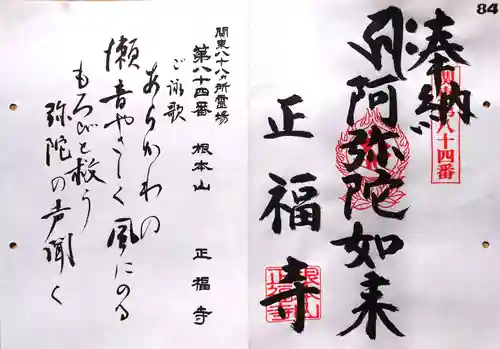 84
奉納
関東第八十四番
阿弥陀如来
正福寺
根本山
正福寺
関東八十八ヵ所霊場
第八十四番 根本山 正福寺
ご詠歌
あらかわの
瀬音やさしく風にのる
もろびと救う
弥陀の声聞く